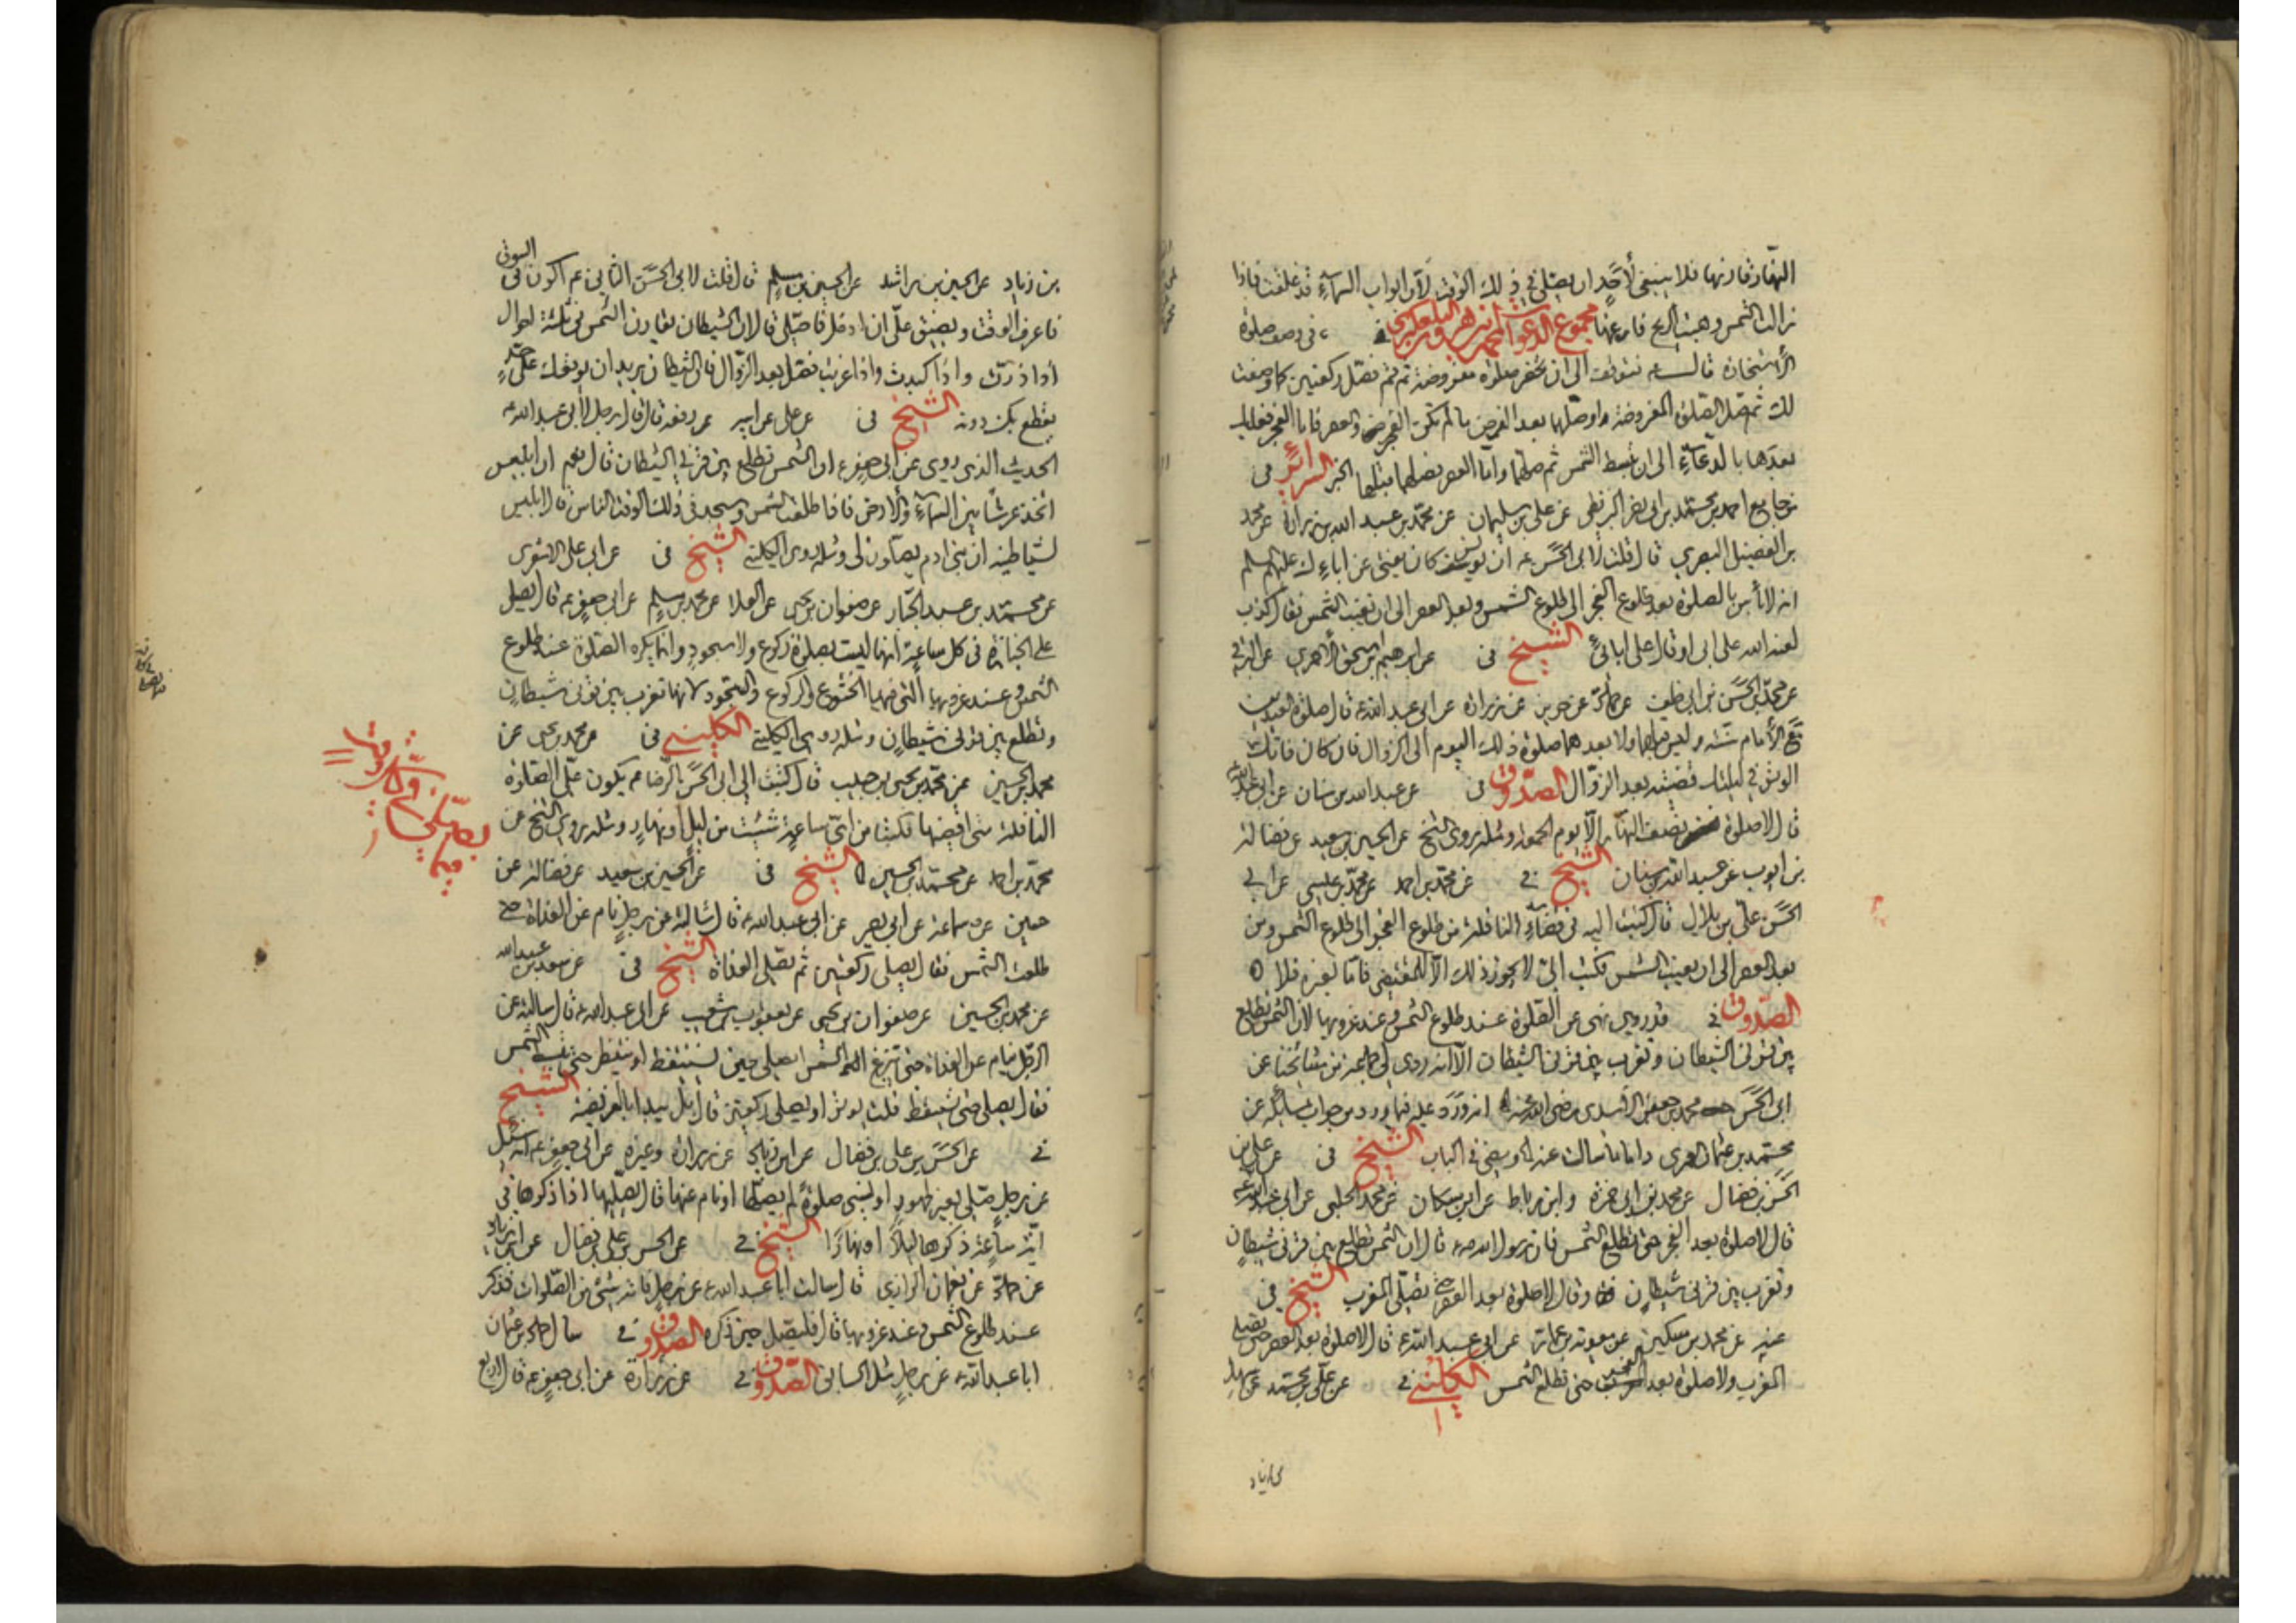 النهار قارنها فلا ينبغي لأحد ان يصلي في ذلك الوقت لان ابواب السماء قد غلقت فاذا
زالت الشمس وهبت الريح فارقها مجموع الدعوات في وصف صلوة
الأستخارة قال تتوقف الى ان تحضر صلوة مفروضة ثم قم فصل ركعتين كما وصفت
لك ثم صل الصلوة المفروضة او صلهما بعد الفرض ما لم تكن الفجر والعصر فاما الفجر فعليك
بعدها بالدعاء الى ان تبسط الشمس ثم صلهما واما العصر فصلهما قبلها الخبر السرائر في
من جامع احمد بن محمد بن ابي نصر البزنطي عن علي بن سليمان عن محمد بن عبد الله بن زرارة عن محمد
بن الفضيل البصري قال قلت لابي الحسن ع ان يونس كان يفتي عن اباءك عليهم السلم
انه لا بأس بالصلوة بعد طلوع الفجر الى طلوع الشمس وبعد العصر الى ان تغيب الشمس فقال كذب
لعنه الله على ابي او قال على ابائي الشيخ في عن ابرهيم بن اسحق الأحمري عن
عن محمد بن الحسن بن ابي خلف عن حماد عن حريز عن زرارة عن ابي عبد الله ع قال صلوة العيدين
مع الأمام سنة وليس قبلهما ولا بعدهما صلوة ذلك اليوم الى الزوال فان كان فاتك
الوتر في ليلتك قضيته بعد الزوال الصدوق في عن عبد الله بن سنان عن ابي عبد الله
قال لا صلوة نصف النهار الا يوم الجمعة ومثله روى الشيخ عن الحسين بن سعيد عن فضالة
بن ايوب عن عبد الله بن سنان الشيخ في عن محمد بن احمد عن محمد بن عيسى عن ابي
الحسن علي بن بلال قال كتبت اليه في قضاء النافلة من طلوع الفجر الى طلوع الشمس ومن
بعد العصر الى ان تغيب الشمس فكتب الي لا يجوز ذلك الا للمقتضي فاما لغيره فلا
الصدوق في قد روي نهي عن الصلوة عند طلوع الشمس وعند غروبها لان الشمس تطلع
بين قرني الشيطان وتغرب بين قرني الشيطان الا انه روى لي جماعة من مشايخنا عن
ابي الحسين محمد بن جعفر الاسدي رضي الله عنه انه ورد عليه فيما ورد من جواب مسائله عن
محمد بن عثمان العمري واما ما سالت عنه الحديث في الباب الشيخ في عن علي بن
الحسن بن فضال عن محمد بن ابي حمزة وابن رباط عن ابن مسكان عن محمد الحلبي عن ابي عبد الله
قال لا صلوة بعد الفجر حتى تطلع الشمس فان رسول الله ص قال ان الشمس تطلع بين قرني شيطان
وتغرب بين قرني شيطان وقال لا صلوة بعد العصر حتى تصلى المغرب الشيخ في
عنه عن محمد بن سكين عن معوية بن عمار عن ابي عبد الله ع قال لا صلوة بعد العصر حتى تصلي
المغرب ولا صلوة بعد الفجر حتى تطلع الشمس الكليني في عن علي بن محمد عن سهل
بن زياد
بن زياد عن الحسين بن راشد عن الحسين بن مسلم قال قلت لابي الحسن الثاني ع اكون في السوق
فاعرف الوقت ويضيق علي ان ادخل فاصلي قال ان الشيطان يقارن الشمس في ثلثة احوال
اذا ذرت واذا كبدت واذا غربت فصل بعد الزوال فان الشيطان يريد ان يوقفك على حد
يقطع بك دونه الشيخ في عن علي عن ابيه عن رفعه قال قال رجل لابي عبد الله ع
الحديث الذي روي عن ابي جعفر ع ان الشمس تطلع بين قرني الشيطان قال نعم ان ابليس
اتخذ عرشا بين السماء والارض فاذا طلعت الشمس وسجد في ذلك الوقت الناس قال ابليس
لشياطينه ان بني ادم يصلون لي ومثله روى الكليني الشيخ في عن ابي علي الاشعري
عن محمد بن عبد الجبار عن صفوان بن يحيى عن العلا عن محمد بن مسلم عن ابي جعفر ع قال يصلى
على الجنازة في كل ساعة انها ليست بصلوة ركوع ولا سجود وانما يكره الصلوة عند طلوع
الشمس وعند غروبها التي فيها الخشوع والركوع والسجود لانها تغرب بين قرني شيطان
وتطلع بين قرني شيطان ومثله روى الكليني الكليني في عن محمد بن يحيى عن
محمد بن الحسين عن محمد بن يحيى بن حبيب قال كتبت الى ابي الحسن الرضا ع يكون علي الصلوة
النافلة متى اقضيها فكتب من اي ساعة شئت من ليل او نهار ومثله روى الشيخ عن
محمد بن احمد عن محمد بن الحسين الشيخ في عن الحسين بن سعيد عن فضالة عن
حسين عن سماعة عن ابي بصير عن ابي عبد الله ع قال سالته عن رجل نام عن الغداة حتى
طلعت الشمس فقال يصلي ركعتين ثم يصلي الغداة الشيخ في عن سعد بن عبد الله
عن محمد بن الحسين عن صفوان بن يحيى عن يعقوب بن شعيب عن ابي عبد الله ع قال سالته عن
الرجل ينام عن الغداة حتى تبزغ الشمس ايصلي حين يستيقظ او ينتظر حتى تنبسط الشمس
فقال يصلي حين يستيقظ قلت يوتر او يصلي ركعتين قال بل يبدأ بالفريضة الشيخ
في عن الحسن بن علي بن فضال عن ابن زياد عن زرارة وغيره عن ابي جعفر ع انه سئل
عن رجل صلى بغير طهور او نسي صلوة لم يصلها او نام عنها قال يصليها اذا ذكرها في
اية ساعة ذكرها ليلا او نهارا الشيخ في عن الحسن بن علي بن فضال عن ابن زياد
عن حماد عن نعمان الرازي قال سالت ابا عبد الله ع عن رجل فاته شيئ من الصلوات فذكر
عند طلوع الشمس وعند غروبها قال فليصل حين ذكره الصدوق في سال حماد بن عثمان
ابا عبد الله ع عن رجل مثل السابق الصدوق في عن زرارة عن ابي جعفر ع قال اربع